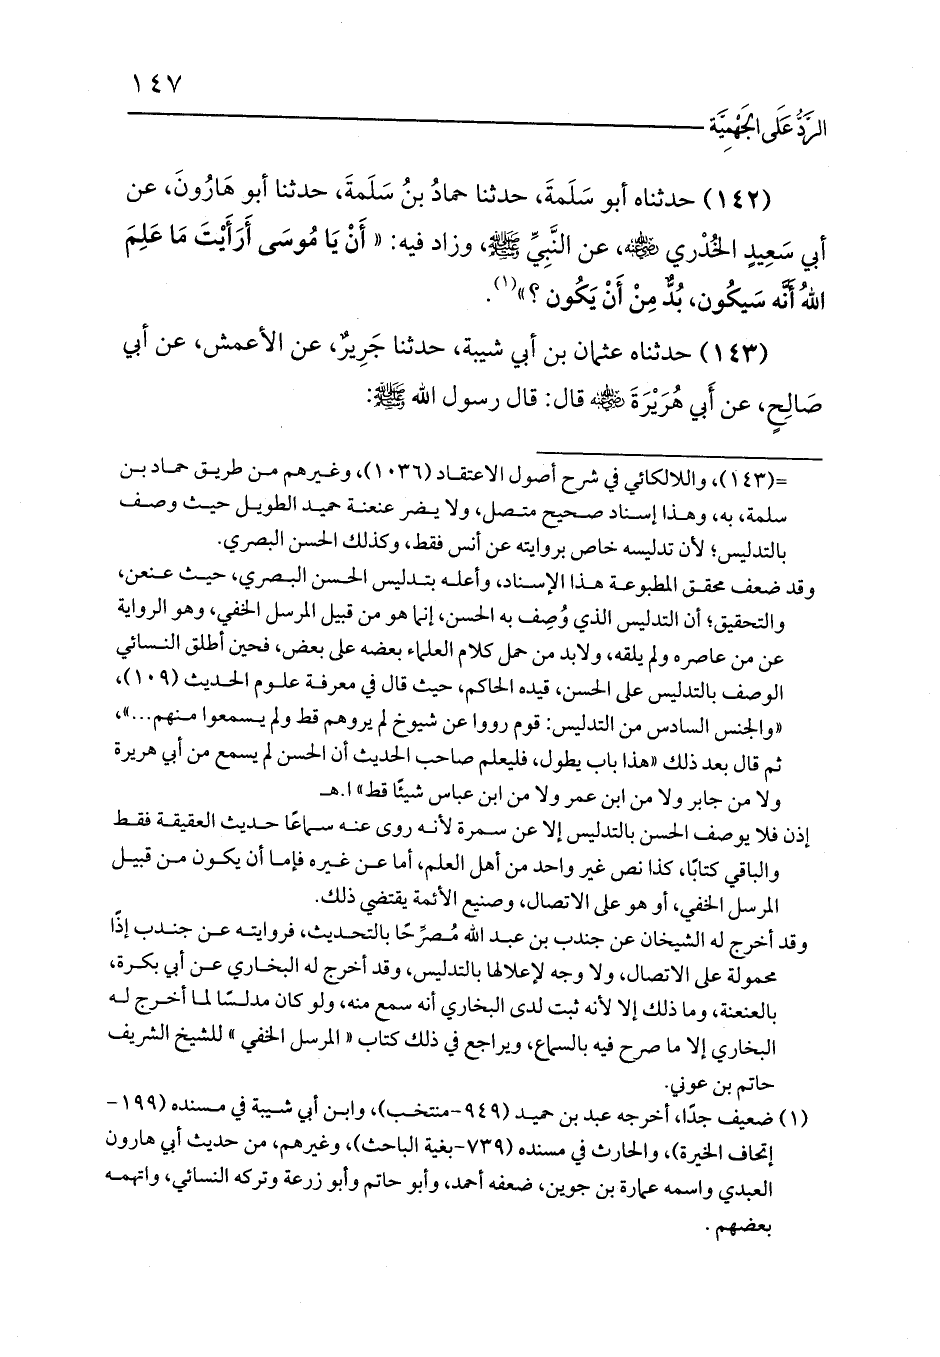 ١٤٧
الرَّدُّ عَلَى الجَهْمِيَّة
(١٤٢) حدثناه أبو سَلَمةَ، حدثنا حمادُ بنُ سَلَمةَ، حدثنا أبو هَارُونَ، عن
أبي سَعِيدٍ الخُدْرِي ﵁، عن النَّبِيِّ ﷺ، وزاد فيه: «أَنْ يَا مُوسَى أَرَأَيْتَ مَا عَلِمَ
اللهُ أنَّه سَيكُون، بُدٌّ مِنْ أَنْ يَكُون ؟»(١).
(١٤٣) حدثناه عثمان بن أبي شيبة، حدثنا جَرِيرٌ، عن الأعمش، عن أبي
صَالِحٍ، عن أَبي هُرَيْرَةَ ﵁ قال: قال رسول الله ﷺ:
=(١٤٣)، واللالكائي في شرح أصول الاعتقاد (١٠٣٦)، وغيرهم من طريق حماد بن
سلمة، به، وهذا إسناد صحيح متصل، ولا يضر عنعنة حميد الطويل حيث وصف
بالتدليس؛ لأن تدليسه خاص بروايته عن أنس فقط، وكذلك الحسن البصري.
وقد ضعف محقق المطبوعة هذا الإسناد، وأعله بتدليس الحسن البصري، حيث عنعن،
والتحقيق؛ أن التدليس الذي وُصِف به الحسن، إنما هو من قبيل المرسل الخفي، وهو الرواية
عن من عاصره ولم يلقه، ولابد من حمل كلام العلماء بعضه على بعض، فحين أطلق النسائي
الوصف بالتدليس على الحسن، قيده الحاكم، حيث قال في معرفة علوم الحديث (١٠٩)،
«والجنس السادس من التدليس: قوم رووا عن شيوخ لم يروهم قط ولم يسمعوا منهم...»،
ثم قال بعد ذلك «هذا باب يطول، فليعلم صاحب الحديث أن الحسن لم يسمع من أبي هريرة
ولا من جابر ولا من ابن عمر ولا من ابن عباس شيئًا قط» ا.هـ
إذن فلا يوصف الحسن بالتدليس إلا عن سمرة لأنه روى عنه سماعًا حديث العقيقة فقط
والباقي كتابًا، كذا نص غير واحد من أهل العلم، أما عن غيره فإما أن يكون من قبيل
المرسل الخفي، أو هو على الاتصال، وصنيع الأئمة يقتضي ذلك.
وقد أخرج له الشيخان عن جندب بن عبد الله مُصرِّحًا بالتحديث، فروايته عن جندب إذًا
محمولة على الاتصال، ولا وجه لإعلالها بالتدليس، وقد أخرج له البخاري عن أبي بكرة،
بالعنعنة، وما ذلك إلا لأنه ثبت لدى البخاري أنه سمع منه، ولو كان مدلسًا لما أخرج له
البخاري إلا ما صرح فيه بالسماع، ويراجع في ذلك كتاب «المرسل الخفي» للشيخ الشريف
حاتم بن عوني.
(١) ضعيف جدًا، أخرجه عبد بن حميد (٩٤٩-منتخب)، وابن أبي شيبة في مسنده (١٩٩-
إتحاف الخيرة)، والحارث في مسنده (٧٣٩-بغية الباحث)، وغيرهم، من حديث أبي هارون
العبدي واسمه عمارة بن جوين، ضعفه أحمد، وأبو حاتم وأبو زرعة وتركه النسائي، واتهمه
بعضهم .